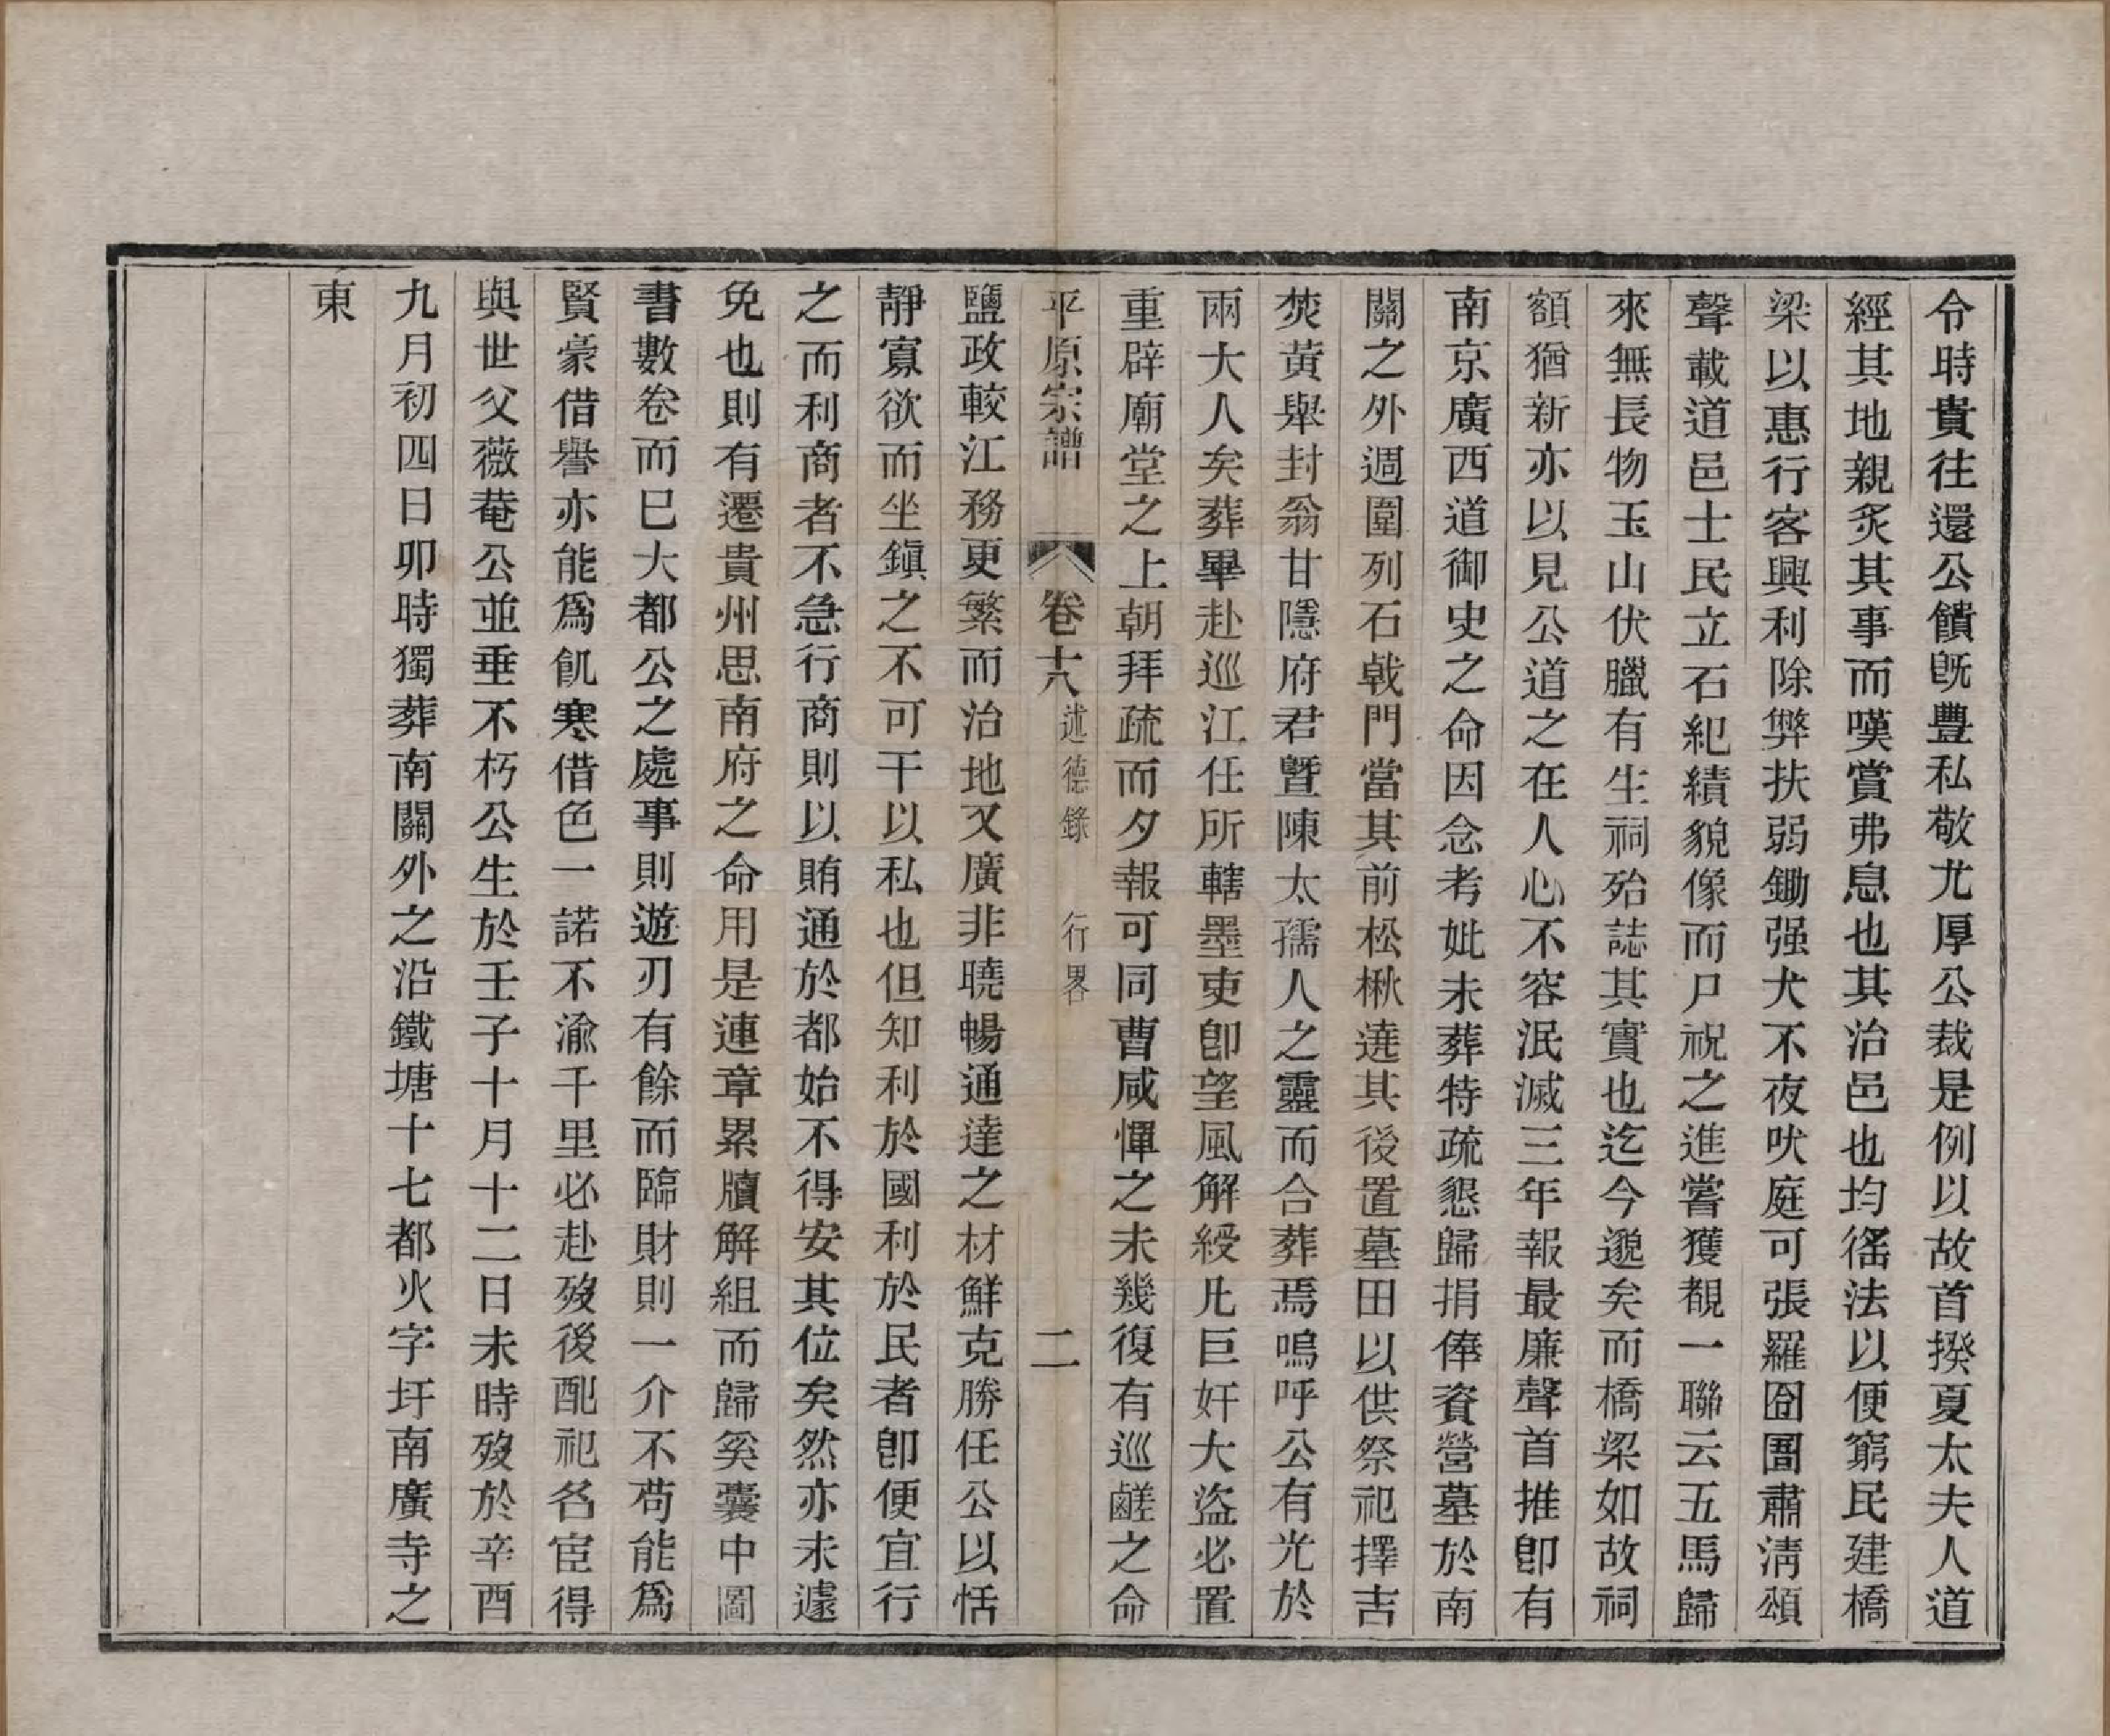 令時貴往還公饋旣豐私敬尤厚公裁是例以故首揆夏太夫人道
經其地親炙其事而嘆賞弗息也其治邑也均徭法以便窮民建橋
梁以惠行客興利除弊扶弱鋤强犬不夜吠庭可張羅囹圄肅淸頌
聲載道邑士民立石紀績貌像而尸祝之進嘗獲覩一聯云五馬歸
來無長物玉山伏臘有生祠殆誌其實也迄今邈矣而橋梁如故祠
額猶新亦以見公道之在人心不容泯滅三年報最廉聲首推卽有
南京廣西道御史之命因念考妣未葬特疏懇歸捐俸資營墓於南
關之外週圍列石戟門當其前松楸遶其後置墓田以供祭祀擇吉
焚黃舉封翁甘隱府君曁陳太孺人之靈而合葬焉嗚呼公有光於
兩大人矣葬畢赴巡江任所轄墨吏卽望風解綬凡巨奸大盜必置
重辟廟堂之上朝拜疏而夕報可同曹咸憚之未幾復有巡鹺之命
平原宗譜 卷十八 述德錄 行畧 二
鹽政較江務更繁而治地又廣非曉暢通達之材鮮克勝任公以恬
靜寡欲而坐鎭之不可干以私也但知利於國利於民者卽便宜行
之而利商者不急行商則以賄通於都始不得安其位矣然亦未遽
免也則有遷貴州思南府之命用是連章累牘解組而歸奚囊中圖
書數卷而已大都公之處事則遊刃有餘而臨財則一介不苟能爲
賢豪借譽亦能爲飢寒借色一諾不渝千里必赴歿後配祀名宦得
與世父薇菴公並垂不朽公生於壬子十月十二日未時歿於辛酉
九月初四日卯時獨葬南關外之沿鐵塘十七都火字圩南廣寺之
東